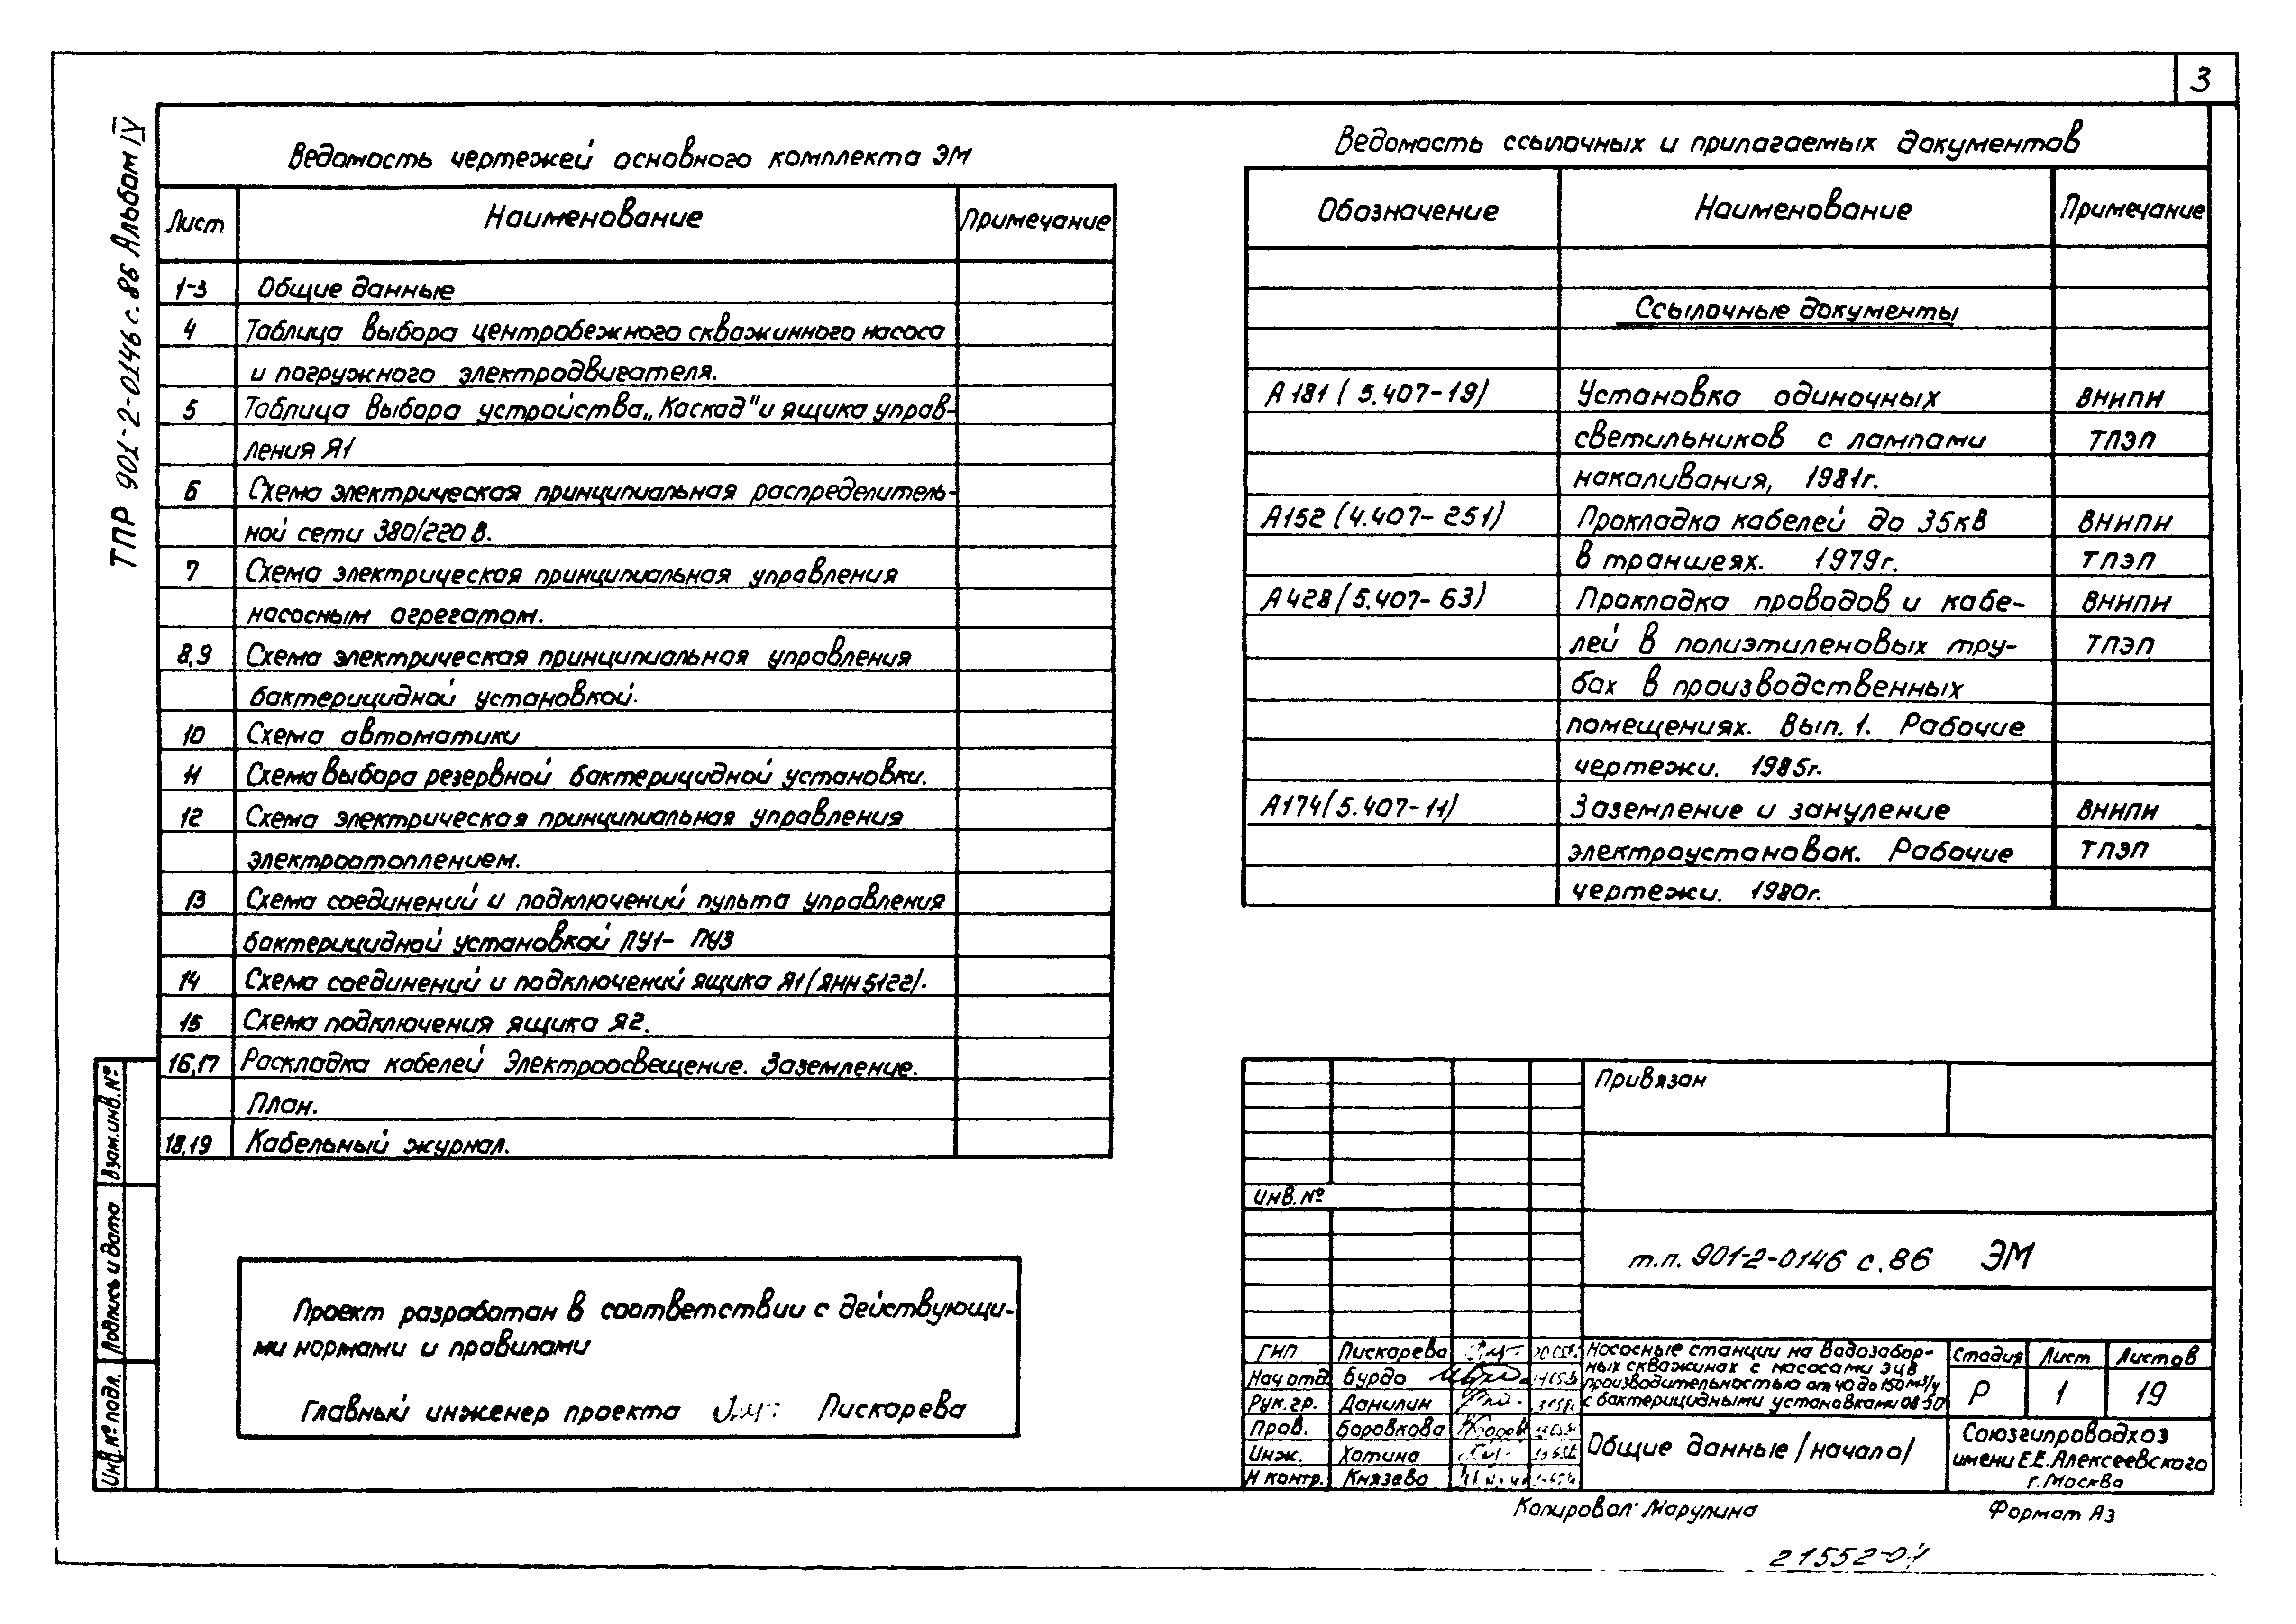 3
ТПР 901-2-0146 с. 86 Альбом IV
Ведомость чертежей основного комплекта ЭМ
Лист Наименование Примечание
1-3 Общие данные
4 Таблица выбора центробежного скважинного насоса
и погружного электродвигателя.
5 Таблица выбора устройства „Каскад" и ящика управ-
ления Я1
6 Схема электрическая принципиальная распределитель-
ной сети 380/220 В.
7 Схема электрическая принципиальная управления
насосным агрегатом.
8,9 Схема электрическая принципиальная управления
бактерицидной установкой.
10 Схема автоматики
11 Схема выбора резервной бактерицидной установки.
12 Схема электрическая принципиальная управления
электроотоплением.
13 Схема соединений и подключений пульта управления
бактерицидной установкой ПУ1- ПУ3
14 Схема соединений и подключений ящика Я1 (ЯНН5122).
15 Схема подключения ящика Я2.
16,17 Раскладка кабелей Электроосвещение. Заземление.
План.
18,19 Кабельный журнал.
Проект разработан в соответствии с действующи-
ми нормами и правилами
Главный инженер проекта Пискарева
Ведомость ссылочных и прилагаемых документов
Обозначение Наименование Примечание
Ссылочные документы
А 181 (5.407-19) Установка одиночных ВНИПИ
светильников с лампами ТПЭП
накаливания, 1981г.
А152 (4.407-251) Прокладка кабелей до 35кВ ВНИПИ
в траншеях. 1979г. ТПЭП
А 428 (5.407-63) Прокладка проводов и кабе- ВНИПИ
лей в полиэтиленовых тру- ТПЭП
бах в производственных
помещениях. Вып. 1. Рабочие
чертежи. 1985г.
А174(5.407-11) Заземление и зануление ВНИПИ
электроустановок. Рабочие ТПЭП
чертежи. 1980г.
Привязан
Инв. №
т.п. 901-2-0146 с. 86 ЭМ
ГИП Пискарева
Нач отд. Бурдо
Рук. гр. Данилин
Пров. Боровкова
Инж. Хотина
Н контр. Князева
Насосные станции на водозабор-
ных скважинах с насосами ЭЦВ
производительностью от 40 до 150 м³/ч
с бактерицидными установками ОВ-50
Стадия Лист Листов
Р 1 19
Общие данные /начало/
Союзгипроводхоз
имени Е.Е. Алексеевского
г. Москва
Копировал: Марулина Формат А3
21552-04
Взам. инв. №
Подпись и дата
Инв. № подл.